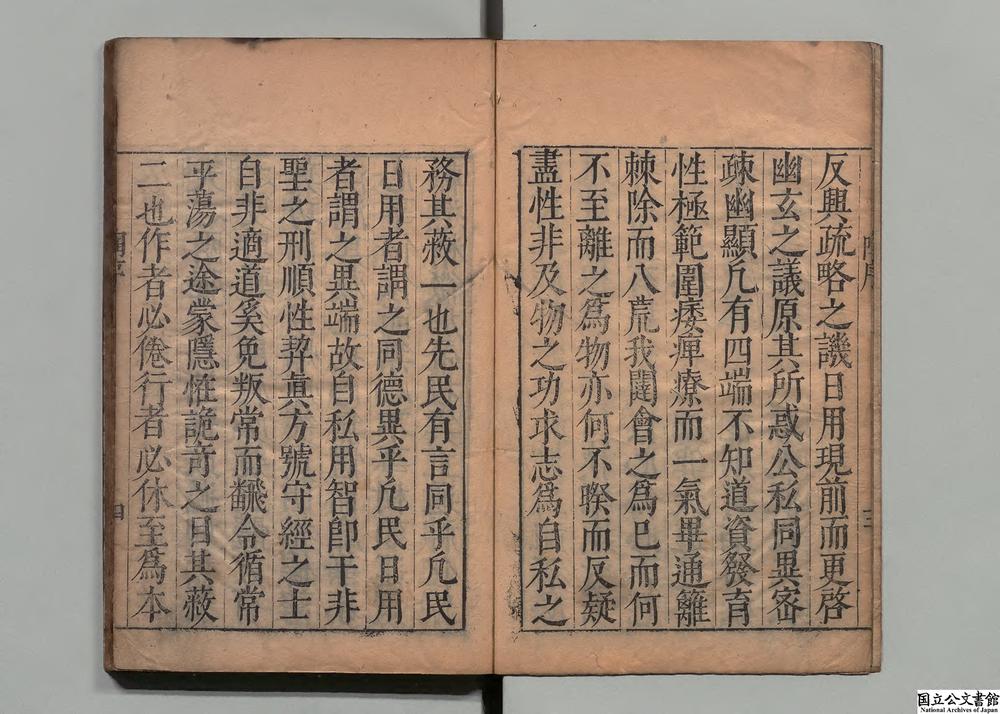 反興疏略之譏日用現前而更啓
幽玄之議原其所惑公私同異宻
疎幽顯凢有四端不知道資發育
性極範圍痿痺療而一氣畢通籬
棘除而八荒我闥會之爲已而何
不至離之爲物亦何不暌而反疑
盡性非及物之功求志爲自私之
務其蔽一也先民有言同乎凢民
日用者謂之同德異乎凢民日用
者謂之異端故自私用智卽干非
聖之刑順性契眞方號守經之士
自非適道奚免叛常而飜令循常
平蕩之途蒙隱怪詭奇之目其蔽
二也作者必倦行者必休至爲本
四
国立公文書館
National Archives of Japan